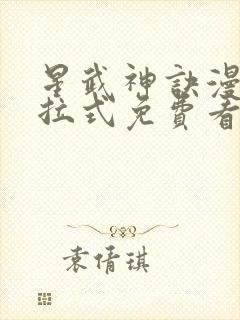 星武神訣漫
拉式免費看
袁倩琪